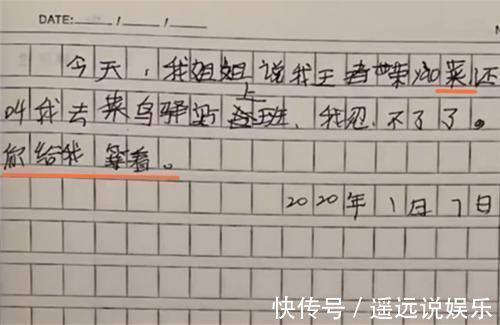 DATE: / /
今天，我姐姐说我王者荣耀菜还
叫我去菜鸟驿站上班，我忍不了了。
你给我等着。
2020年1月7日
快传号 / 遥远说娱乐